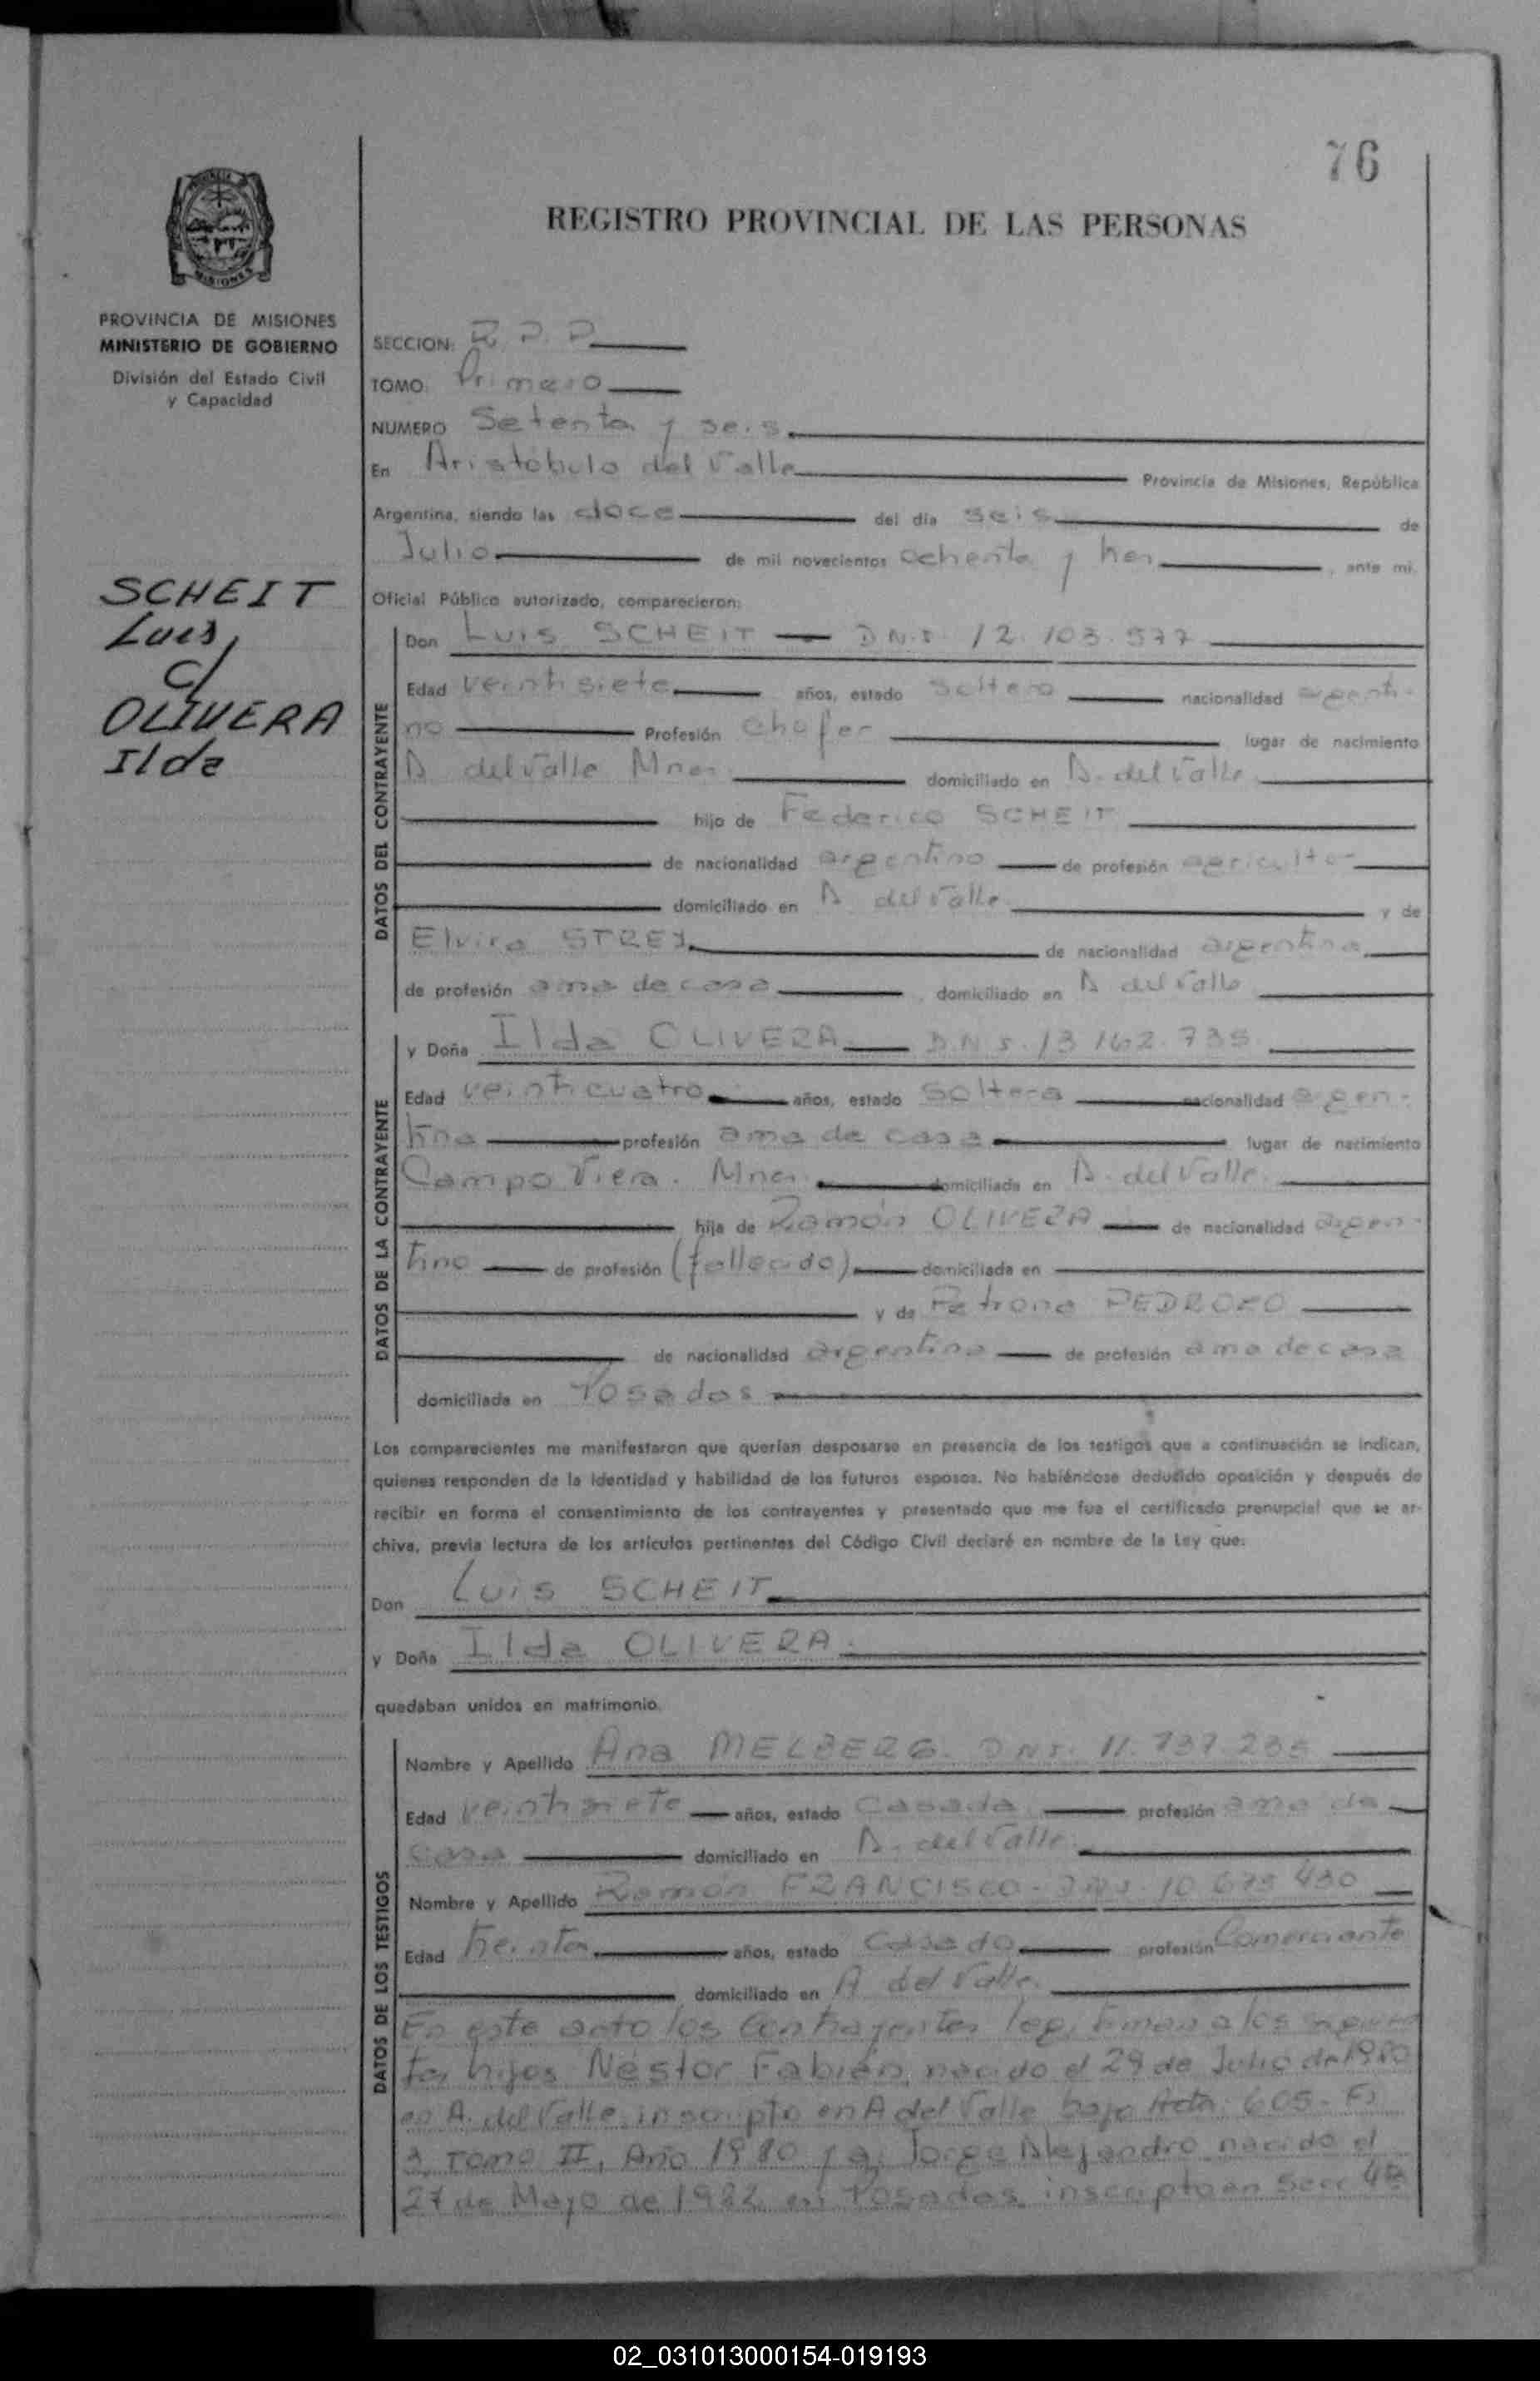 76
REGISTRO PROVINCIAL DE LAS PERSONAS
PROVINCIA DE MISIONES
MINISTERIO DE GOBIERNO
División del Estado Civil
y Capacidad
SCHEIT
Luis
c/
OLIVERA
Ilda
SECCION: R. P. P.
TOMO: Primero
NUMERO Setenta y seis
En Aristóbulo del Valle Provincia de Misiones, República
Argentina, siendo las doce del día seis de
Julio de mil novecientos ochenta y tres, ante mí.
Oficial Público autorizado, comparecieron:
DATOS DEL CONTRAYENTE
Don Luis SCHEIT — D.N.I. 12.103.577
Edad veintisiete años, estado soltero nacionalidad argenti-
no Profesión chofer lugar de nacimiento
A. del Valle Mnes. domiciliado en A. del Valle
hijo de Federico SCHEIT
de nacionalidad argentino de profesión agricultor
domiciliado en A. del Valle y de
Elvira STREY de nacionalidad argentina
de profesión ama de casa domiciliado en A. del Valle
DATOS DE LA CONTRAYENTE
y Doña Ilda OLIVERA D.N.I. 13.162.735
Edad veinticuatro años, estado soltera nacionalidad argen-
tina profesión ama de casa lugar de nacimiento
Campo Viera. Mnes. domiciliada en A. del Valle.
hija de Ramón OLIVERA de nacionalidad argen-
tino de profesión (fallecido) domiciliada en
y de Petrona PEDROZO
de nacionalidad argentina de profesión ama de casa
domiciliada en Posadas
Los comparecientes me manifestaron que querían desposarse en presencia de los testigos que a continuación se indican,
quienes responden de la identidad y habilidad de los futuros esposos. No habiéndose deducido oposición y después de
recibir en forma el consentimiento de los contrayentes y presentado que me fue el certificado prenupcial que se ar-
chiva, previa lectura de los artículos pertinentes del Código Civil declaré en nombre de la Ley que:
Don Luis SCHEIT
y Doña Ilda OLIVERA.
quedaban unidos en matrimonio.
DATOS DE LOS TESTIGOS
Nombre y Apellido Ana MELBERG. D.N.I. 11.737.235
Edad veintisiete años, estado Casada profesión ama de
casa domiciliado en A. del Valle.
Nombre y Apellido Ramón FRANCISCO - D.N.I. 10.673.430
Edad treinta años, estado Casado profesión Comerciante
domiciliado en A. del Valle.
En este acto los contrayentes legitiman a los siguien
tes hijos Néstor Fabián, nacido el 29 de Julio de 1980
en A. del Valle, inscripto en A del Valle bajo Acta: 605 - Fs
Tomo II, Año 1980 y a: Jorge Alejandro nacido el
27 de Mayo de 1982 en Posadas, inscripto en Secc 4ta
02_031013000154-019193